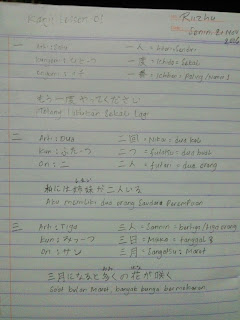 Kanji
Rizhu
一
一人 =
一度 = Ichido = Sekali
一番 = Ichiban =
もう一度 やってください
Tolong lakukan sekali lagi
二
Arti : Dua
二回 = Nikai = dua kali
Kun : ふた・つ
二つ = Futatsu = dua buah
On : ニ
二人 = Futari = dua orang
私には姉妹が二人いる
Aku memiliki dua orang Saudara Perempuan
三
Arti : Tiga
三人 = Sannin = tiga orang
Kun : みっ・つ
三日 = Mikka = tanggal 3
On : サン
三月 = Sangatsu = Maret
三月になると多くの花が咲く
Saat bulan Maret, banyak bunga bermekaran